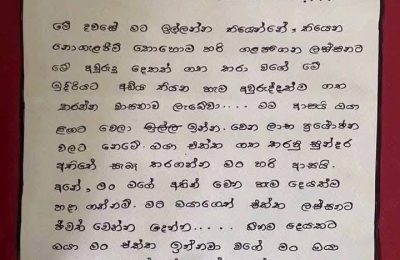 මේ දවසේ මට ඉල්ලන්න තියෙන්නේ, තියෙන
නොගැළපීම් කොහොම හරි ගළපගෙන ලස්සනට
මේ අවුරුදු දෙකත් ගත කරා වගේ මේ
ඉදිරියට අඩිය තියන හැම අවුරුද්දක්ම ගත
කරන්න වාසනාව ලැබේවා.... මම ආසයි ඔයා
ළඟට වෙලා ඉන්න. වෙන ලාභ ප්‍රයෝජන
වලට නෙමේ. ඔයා එක්ක ගත කරපු සුන්දර
අතීතේ සැබෑ කරගන්න මං හරි ආසයි.
අනේ, මං මගේ අතින් වෙන හැම දෙයක්ම
හදා ගන්නම්. මට ඔයාගෙත් එක්ක ලස්සනට
ජීවත් වෙන්න දෙන්න..... ඕනම දෙයකට
ඔයා මං එක්ක ඉන්නවා වගේ මං ඔයා